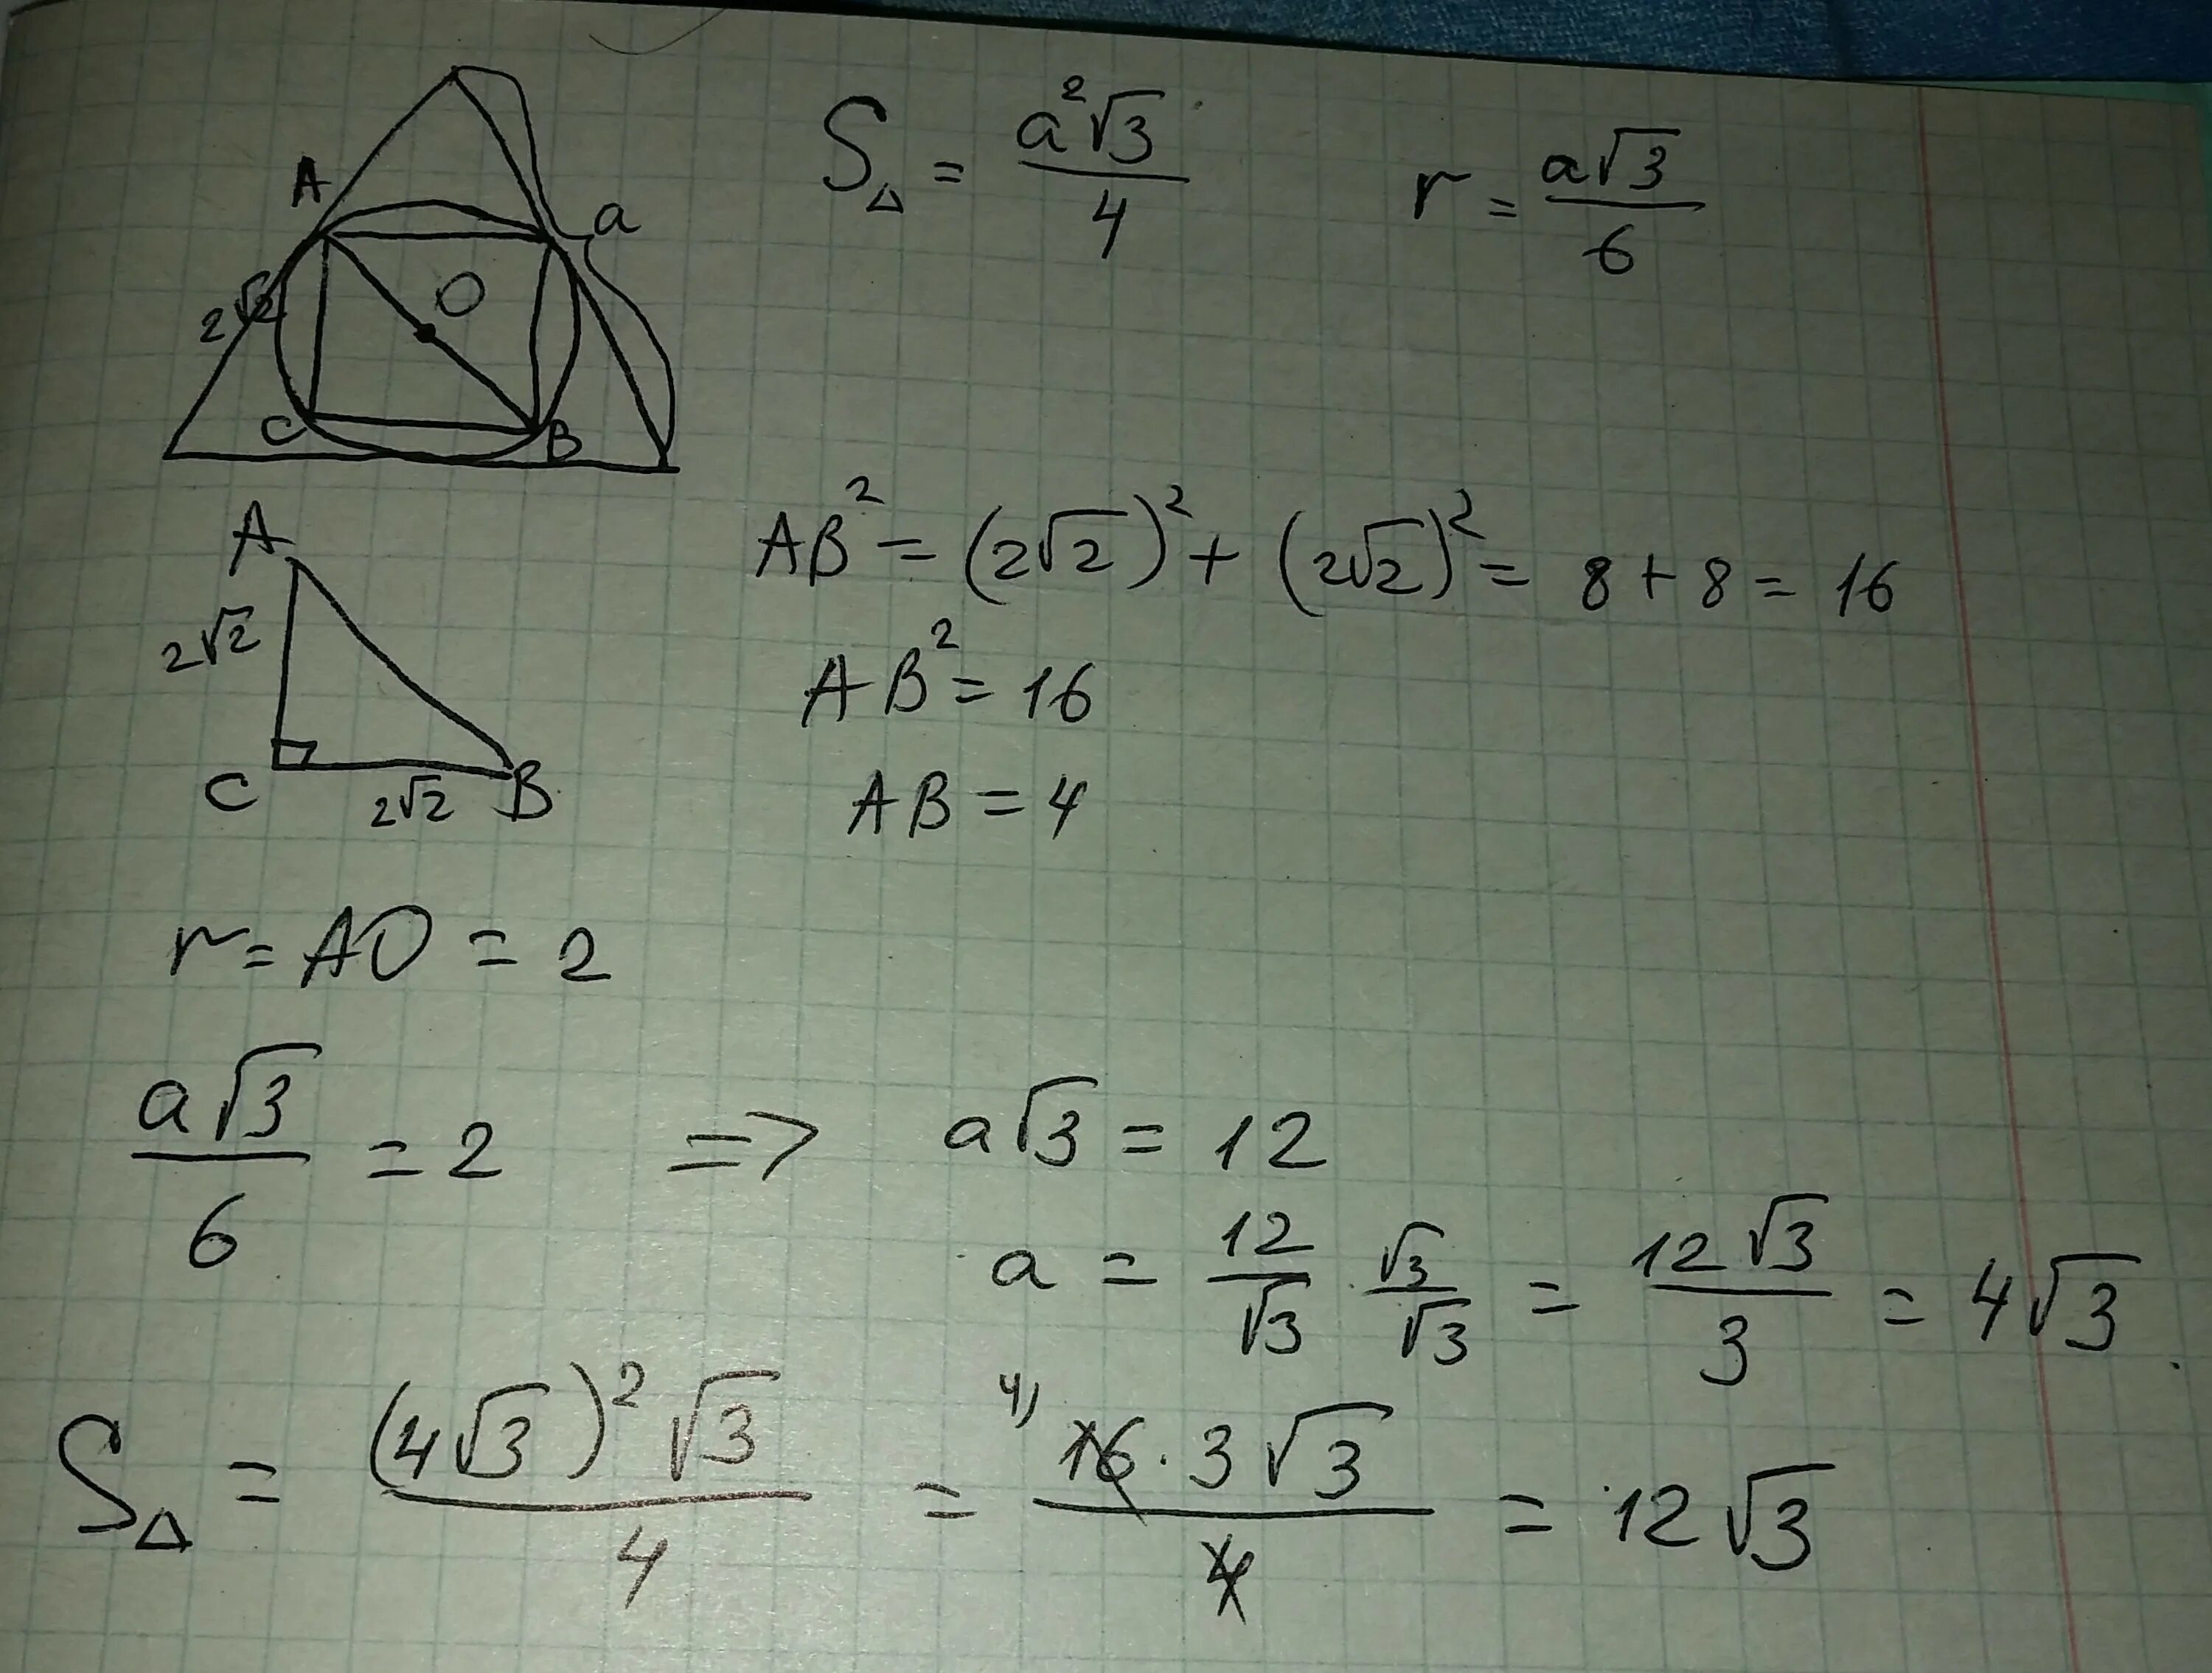 A
a
2√2
O
C
B
S△ = a²√3/4
r = a√3/6
A
2√2
C
2√2
B
AB² = (2√2)² + (2√2)² = 8 + 8 = 16
AB² = 16
AB = 4
r = AO = 2
a√3/6 = 2 => a√3 = 12
a = 12/√3 · √3/√3 = 12√3/3 = 4√3
S△ = (4√3)²√3/4 = 4) 16 · 3√3/4 = 12√3